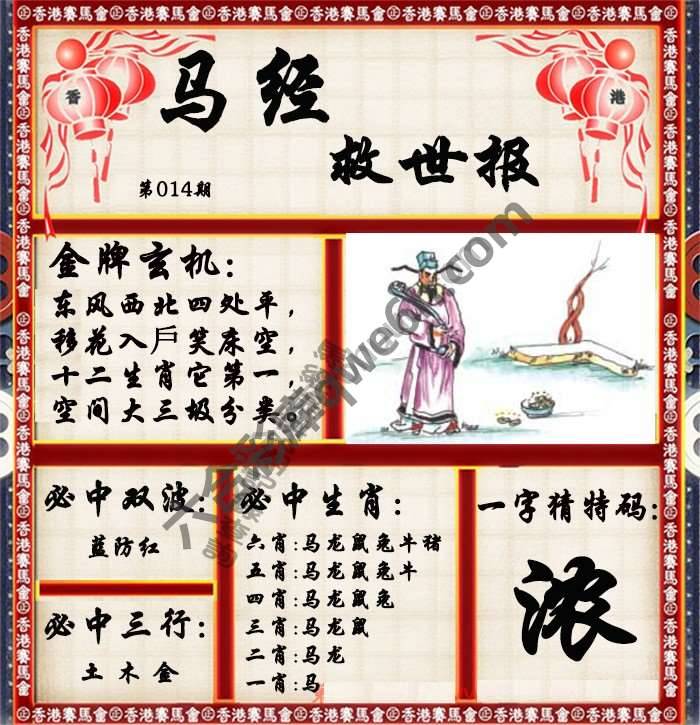 香港賽馬會
香 港
马经
救世报
第014期
金牌玄机:
东风西北四处平,
移花入戶笑床空,
十二生肖它第一,
空间大三圾分类。
必中双波:
蓝防红
必中三行:
土木金
必中生肖:
六肖:马龙鼠兔牛猪
五肖:马龙鼠兔牛
四肖:马龙鼠兔
三肖:马龙鼠
二肖:马龙
一肖:马
一字猜特码:
浓